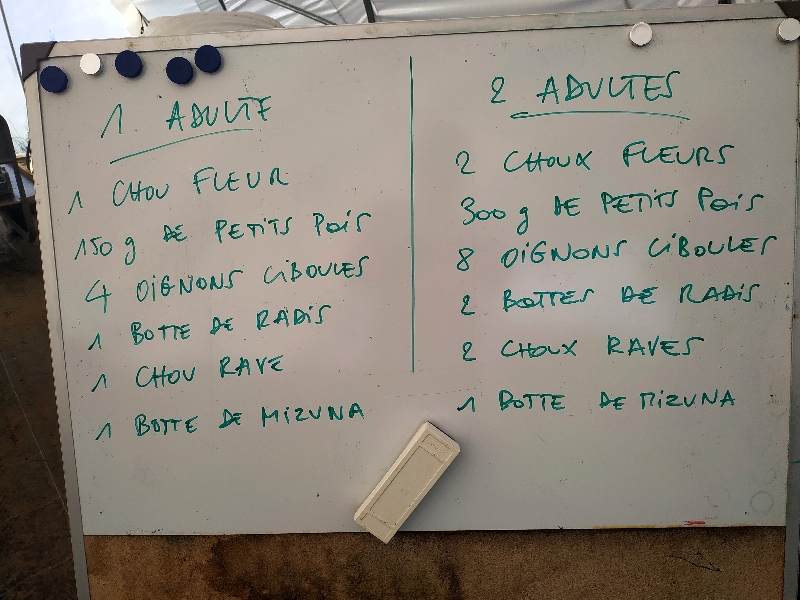 1 ADULTE
1 CHOU FLEUR
150 g DE PETITS POIS
4 OIGNONS CIBOULES
1 BOTTE DE RADIS
1 CHOU RAVE
1 BOTTE DE MIZUNA
2 ADULTES
2 CHOUX FLEURS
300 g DE PETITS POIS
8 OIGNONS CIBOULES
2 BOTTES DE RADIS
2 CHOUX RAVES
1 BOTTE DE MIZUNA